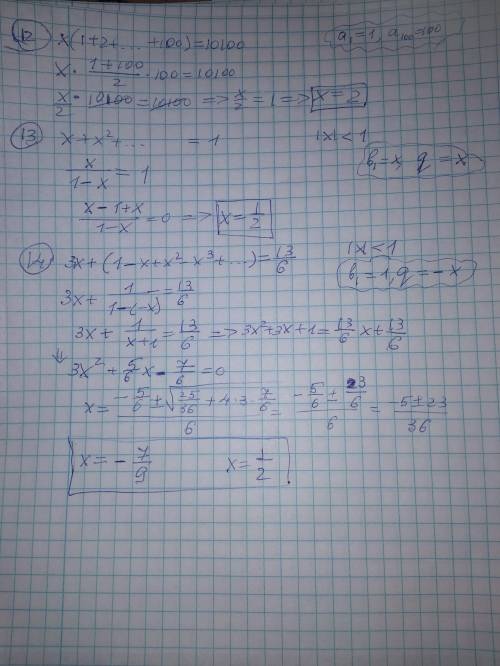 12 x(1+2+...+100)=10100 a₁=1, a₁₀₀=100
x · (1+100)/2 · 100=10100
x/2 · 10100=10100 => x/2=1 => x=2
13 x+x²+... = 1 |x|<1
x/(1-x) = 1 b₁=x, q=x
(x-1+x)/(1-x)=0 => x=1/2
14 3x+(1-x+x²-x³+...)=13/6 |x|<1
3x+ 1/(1-(-x)) =13/6 b₁=1, q=-x
3x+ 1/(x+1) =13/6 => 3x²+3x+1=13/6 x+13/6
⇓ 3x²+5/6 x-7/6=0
x= (-5/6 ± √(25/36+4·3·7/6))/6 = (-5/6 ± 23/6)/6 = (-5±23)/36
x=-7/9 x=1/2